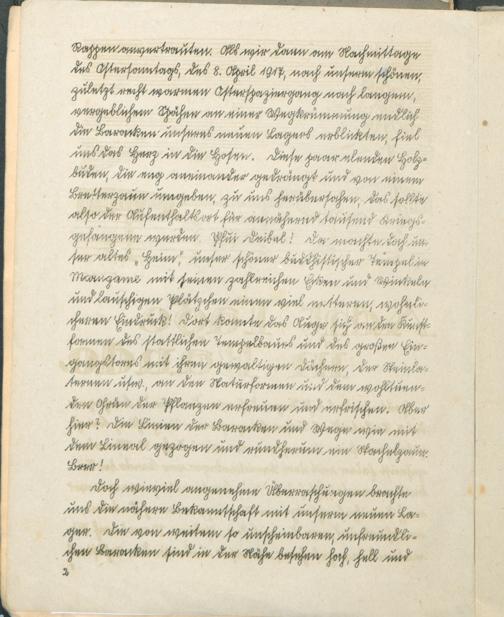 Kappen anvertrauten. Als wir dann am Nachmittage
des Ostersonntags, des 8. April 1917, nach unserem schönen,
zuletzt recht warmen Osterspaziergang nach langem,
vergeblichem Spähen an einer Wegkrümmung endlich
die Baracken unseres neuen Lagers erblickten, fiel
uns das Herz in die Hosen. Diese paar elenden Holz-
buden, die eng aneinander gedrängt und von einem
Bretterzaun umgeben, zu uns herübersahen, das sollte
also der Aufenthaltsort für annähernd tausend Kriegs-
gefangene werden. Pfui Deibel! Da machte doch un-
ser altes „Heim", unser schöner buddhistischer Tempel in
mit seinen zahlreichen Ecken und Winkeln
und lauschigen Plätzchen einen viel netteren, wohnli-
cheren Eindruck! Dort konnte das Auge sich an den Kunst-
formen des stattlichen Tempelbaues und des großen Ein-
gangstores mit ihren gewaltigen Dächern, der Steinla-
ternen usw., an den Naturformen und dem wohltuen-
den Grün der Pflanzen erfreuen und erfrischen. Aber
hier? Die Linien der Baracken und Wege wie mit
dem Lineal gezogen und rundherum ein Stachelzaun.
Brrr!
Doch wieviel angenehme Überraschungen brachte
uns die nähere Bekanntschaft mit unserm neuen La-
ger. Die von weitem so unscheinbaren, unfreundli-
chen Baracken sind in der Nähe besehen hoch, hell und
2